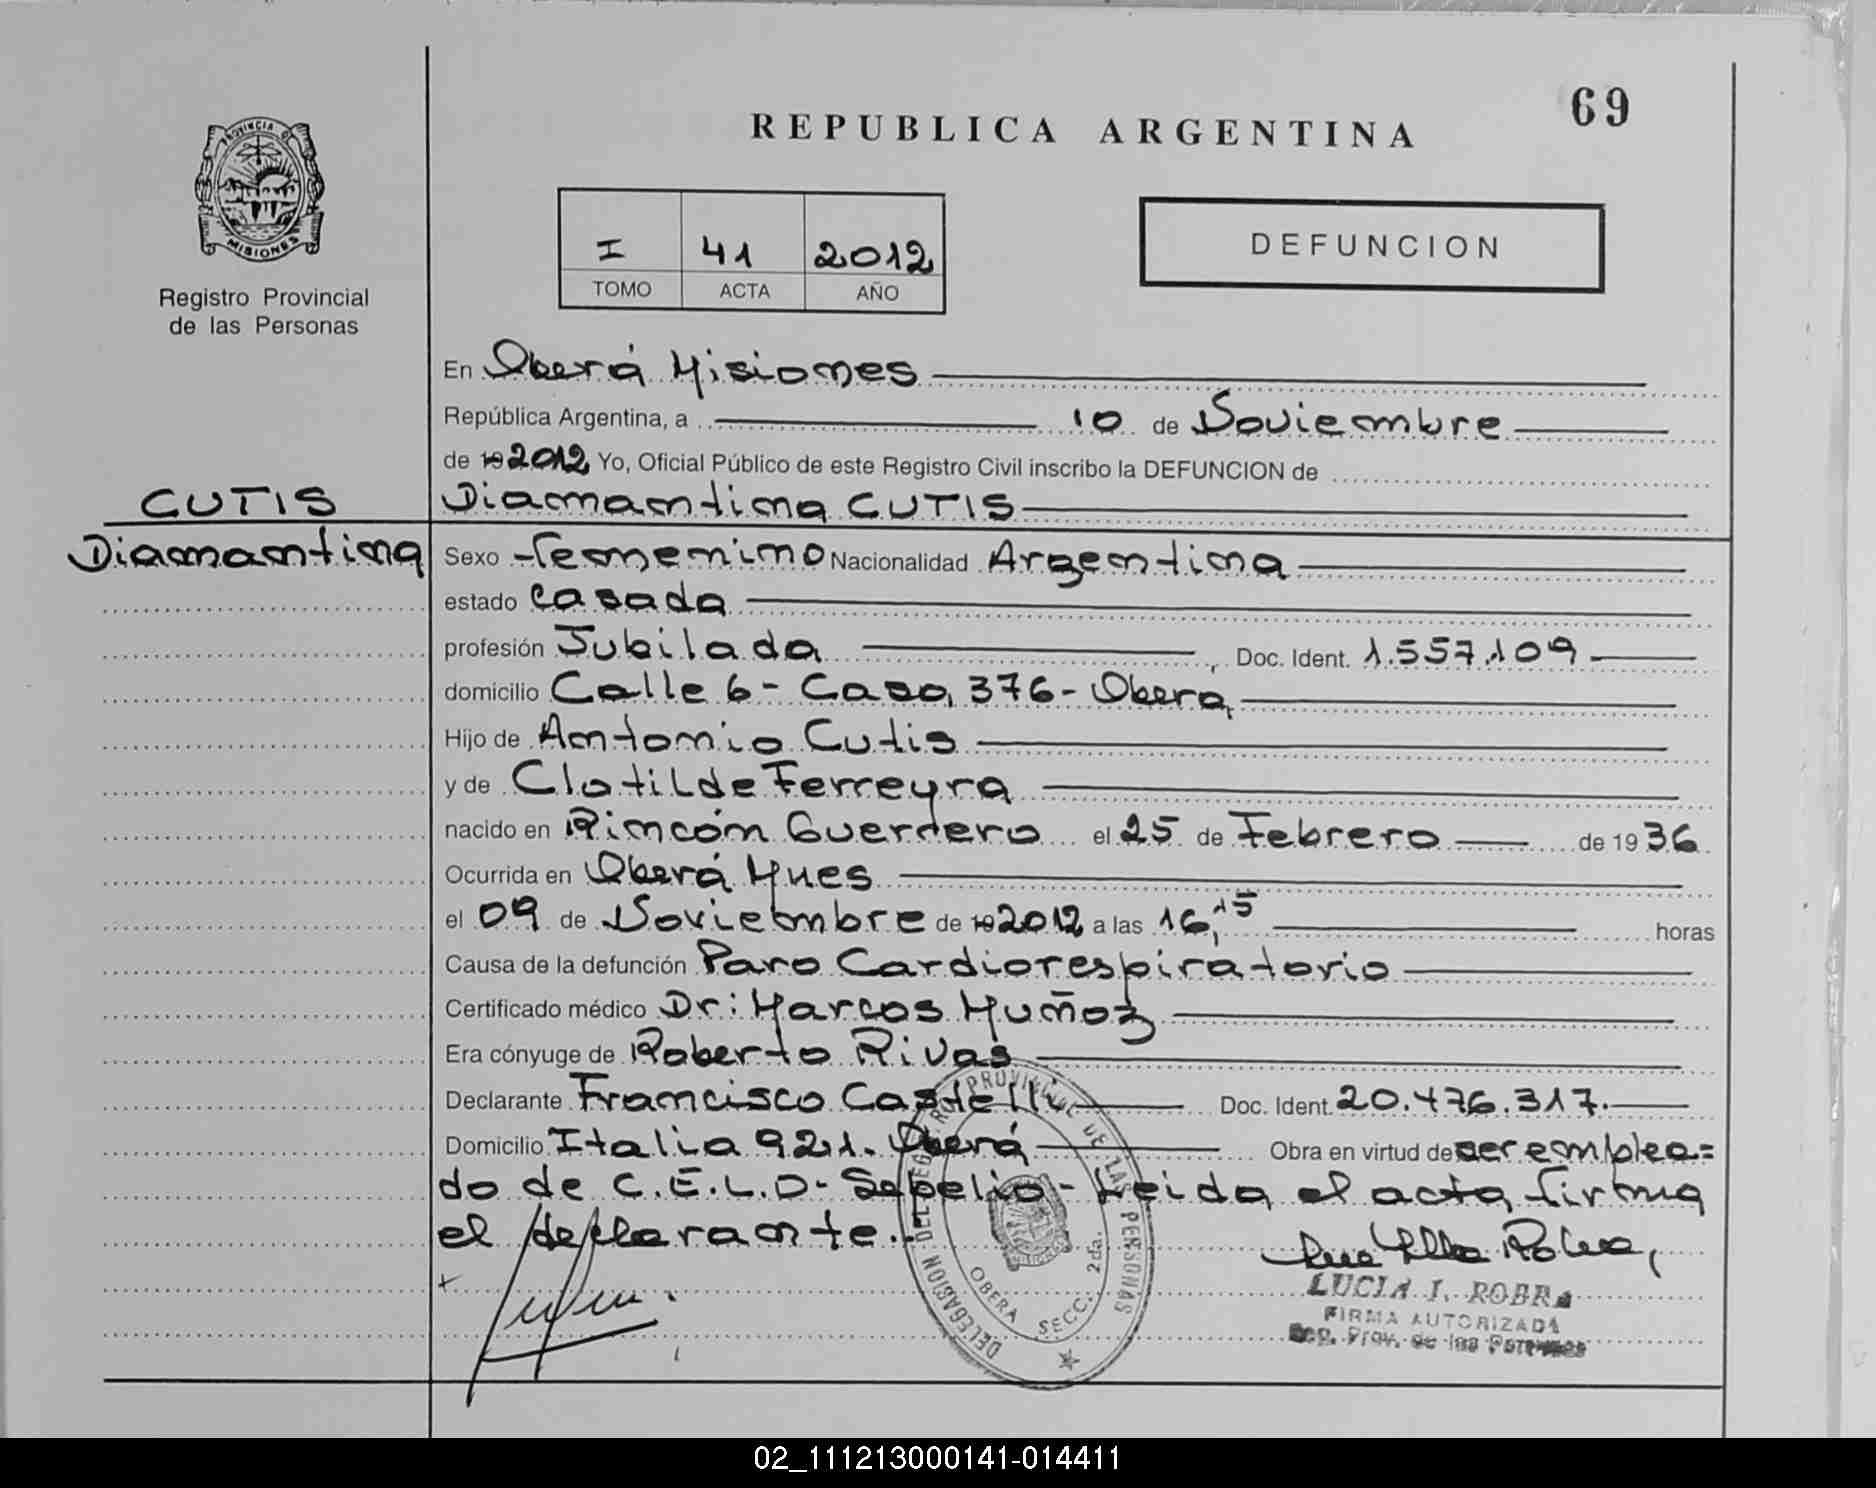 69
REPUBLICA ARGENTINA
PROVINCIA DE
MISIONES
Registro Provincial
de las Personas
I 41 2012
TOMO ACTA AÑO
DEFUNCION
En Oberá Misiones
República Argentina, a 10 de Noviembre
de 19 2012 Yo, Oficial Público de este Registro Civil inscribo la DEFUNCION de
CUTIS
Diamantina CUTIS
Diamantina
Sexo Femenino Nacionalidad Argentina
estado Casada
profesión Jubilada, Doc. Ident. 1.557.109
domicilio Calle 6 - Casa 376 - Obera
Hijo de Antonio Cutis
y de Clotilde Ferreyra
nacido en Rincón Guerrero el 25 de Febrero de 1936
Ocurrida en Oberá Mnes
el 09 de Noviembre de 19 2012 a las 16,15 horas
Causa de la defunción Paro Cardiorespiratorio
Certificado médico Dr: Marcos Muñoz
Era cónyuge de Roberto Rivas
Declarante Francisco Castelli Doc. Ident. 20.476.317.
Domicilio Italia 921. Oberá Obra en virtud de ser emplea=
do de C.E.L.O - Sepelio - Leida el acta firma
el declarante.
DELEGACION DEL REGISTRO PROVINCIAL DE LAS PERSONAS
OBERA SECC. 2da.
LUCIA I. ROBRA
FIRMA AUTORIZADA
Reg. Prov. de las Personas
02_111213000141-014411